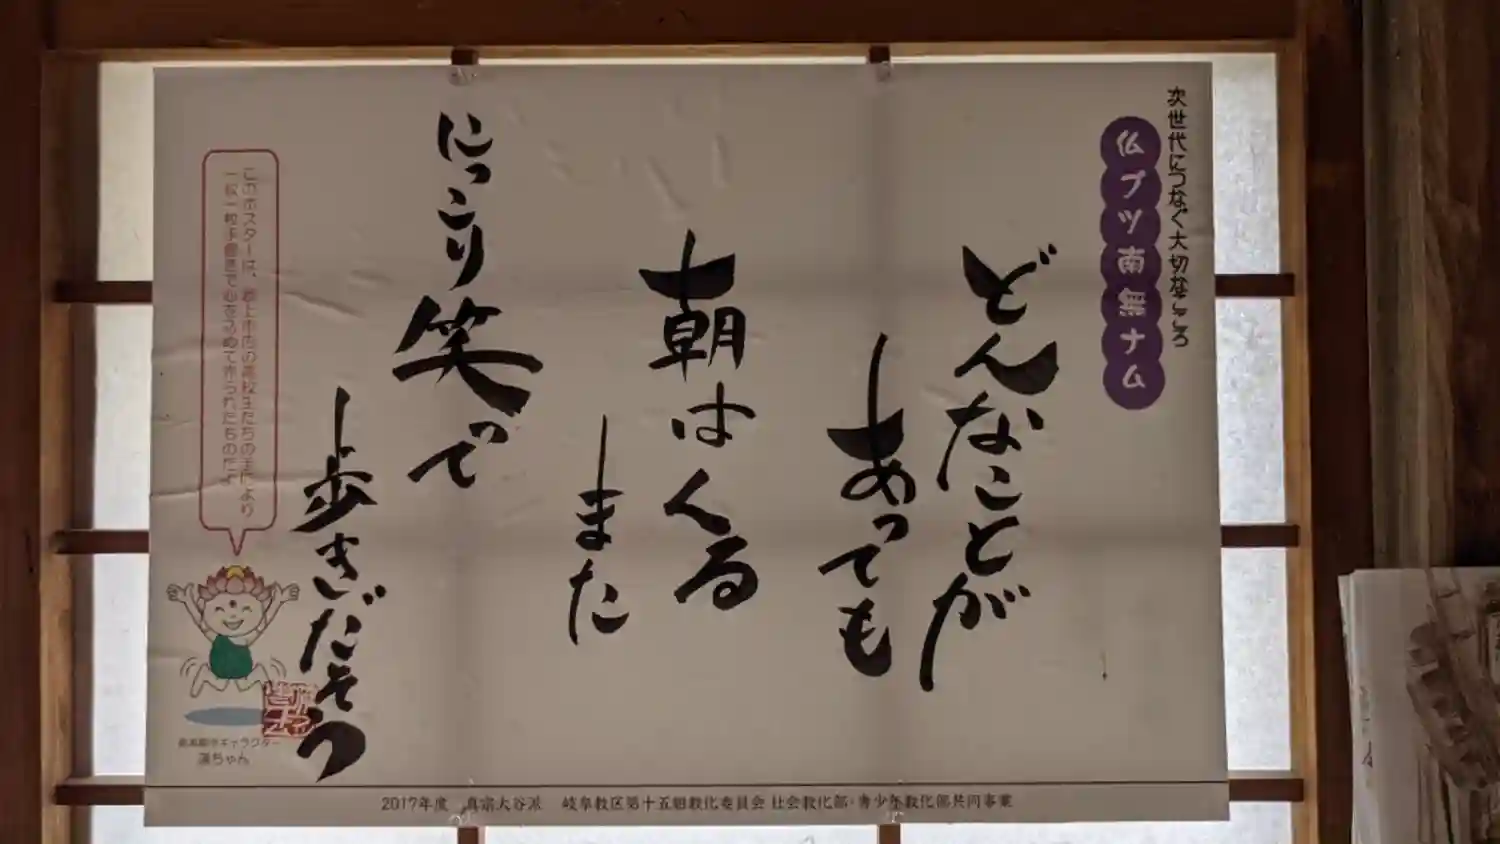 次世代につなぐ大切なこころ
仏ブツ南無ナム
どんなことが
あっても
朝はくる
また
にっこり笑って
歩きだそう
このポスターは、郡上市内の高校生たちの手により
一枚一枚手書きで心を込めて作られたものだよ
蓮ちゃん
2017年度 真宗大谷派 岐阜教区第十五組教化委員会 社会教化部・青少年教化部共同事業